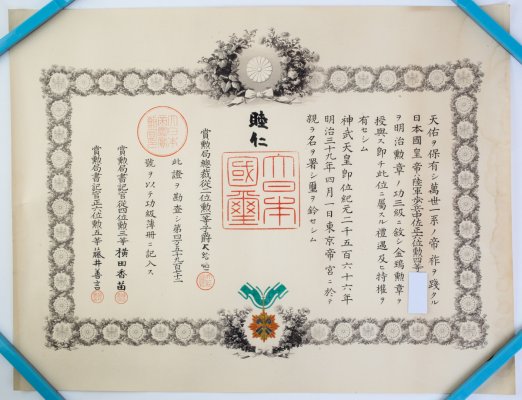 天佑ヲ保有シ萬世一系ノ帝祚ヲ踐タル
日本國皇帝ハ陸軍歩兵中佐正六位勲四等
ヲ明治勲章ノ功三級ニ敘シ金鵄勲章ヲ
授與ス即チ此位ニ屬スル禮遇及ヒ特權ヲ
有セシム
神武天皇即位紀元二千五百六十六年
明治三十九年四月一日東京帝宮ニ於テ
親ラ名ヲ署シ璽ヲ鈐セシム
睦仁
大日本國璽
賞勲局總裁從二位勲一等子爵
此證ヲ勘査シ第四万五千九百十一
號ヲ以テ功級簿冊ニ記入ス
賞勲局書記官從四位勲三等 横田香苗
賞勲局書記官正六位勲五等 藤井善言